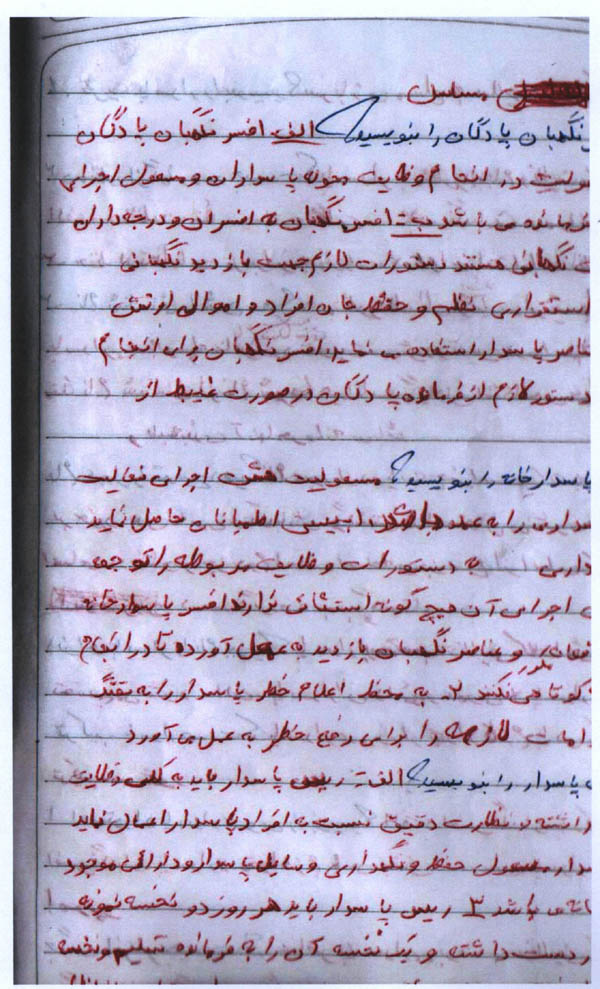 مسلسل
نگهبان پادگان را بنویسید؟ الف افسر نگهبان پادگان
در انجام وظایف پاسداران و مسعول اجرای
فرمانده می باشد ب= افسر نگهبان به افسران و درجه داران
نگهبانی هستند دستورات لازم جهت بازدید نگهبانی
استقراری نظم و حفظ جان افراد و اموال ارتش
عناصر پاسدار استفاده می نماید افسر نگهبان برای انجام
دستور لازم از فرمانده پادگان در صورت غایبط از
پاسدار خانه را بنویسید؟ مسعولیت اجرای فعالیت
را به عمل اطمینان حاصل نماید
داری به دستورات وظایف مربوطه را توجه
اجرای آن هیچ گونه استثنائی ندارند افسر پاسدارخانه
و عناصر نگهبان بازدید به عمل آورده تا در انجام
کوتاهی نکنند ۲ـ به محظ اعلام خطر پاسدار را به تفنگ
لازمه را برای رفع خطر به عمل می آورد
پاسدار را بنویسید؟ الف= ریس پاسدار باید به کلی وظایف
داشته و نظارت دقیق نسبت به افراد پاسدار اعمال نماید
مسعول حفظ و نگهداری وسایل پاسدار و دارائی موجود
می باشد ۳ ریس پاسدار باید هر روز دو نخسه نمونه
در دست داشته و یک نخسه آن را به فرمانده تسلیم و نخسه